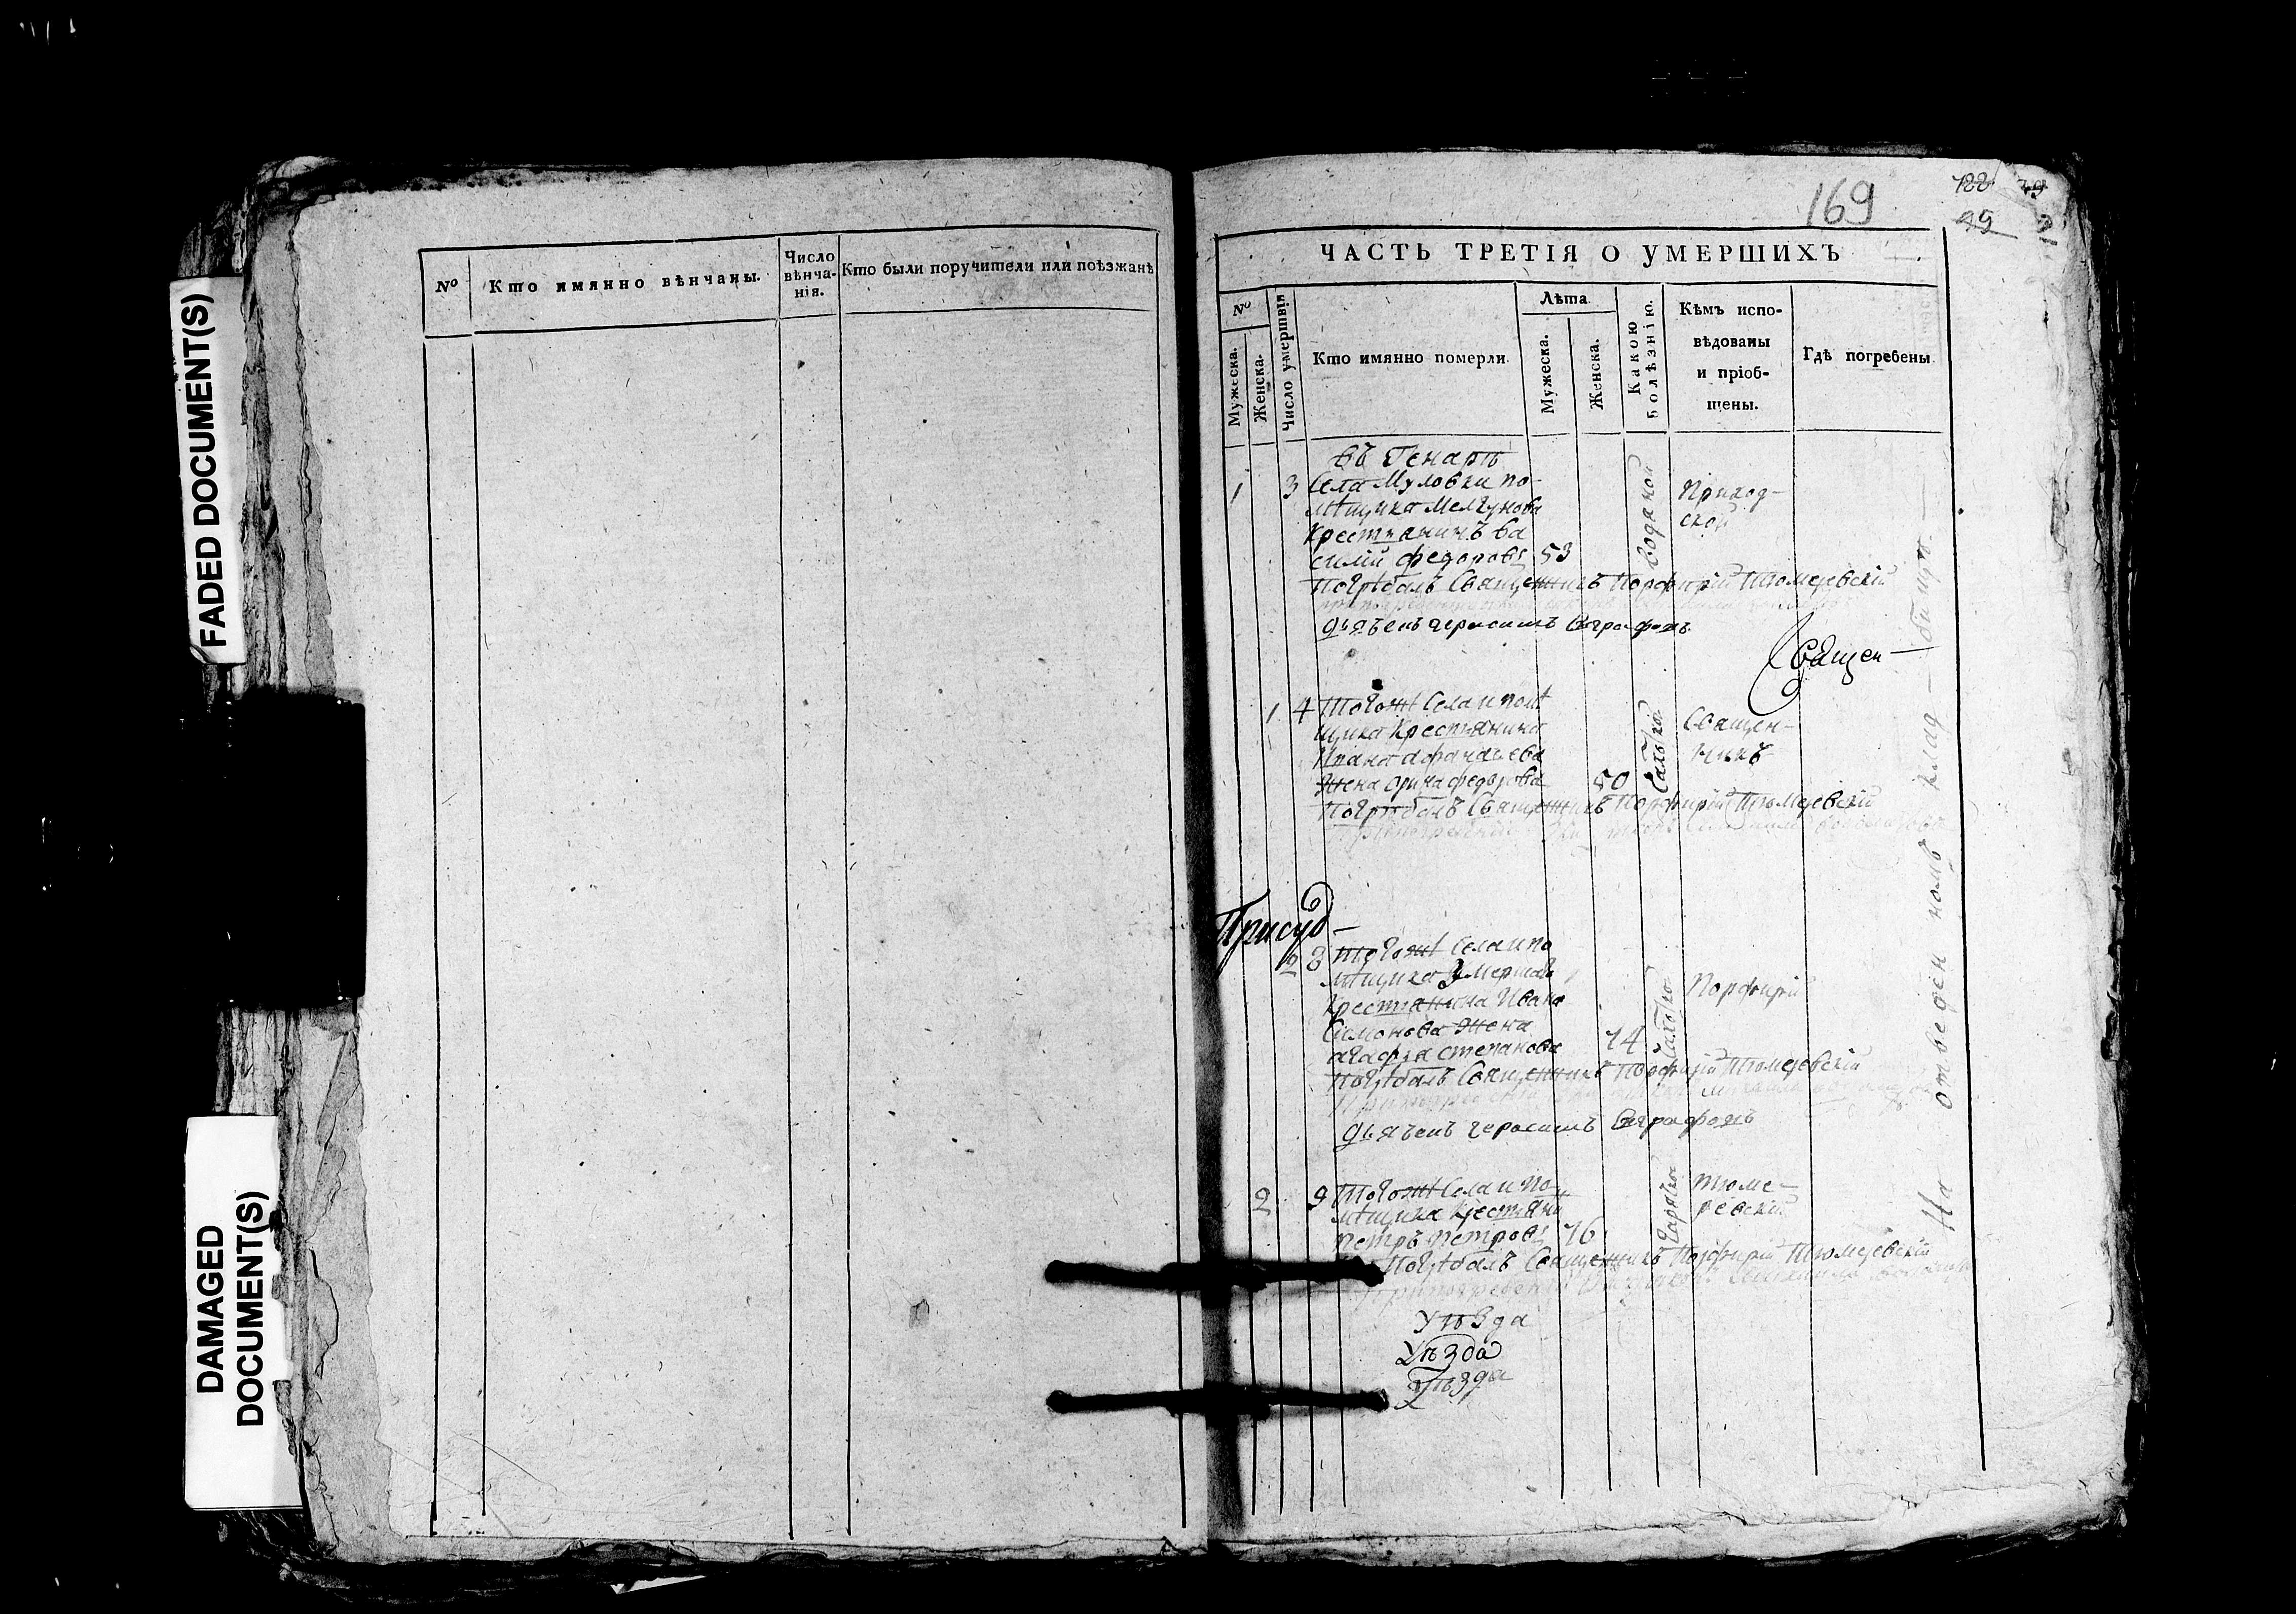 FADED DOCUMENT(S)
DAMAGED
DOCUMENT(S)
№
Кто имянно вѣнчаны.
Число
вѣнча-
нія.
Кто были поручители или поѣзжанѣ
169
122
99
ЧАСТЬ ТРЕТІЯ О УМЕРШИХЪ
№
Мужеска.
Женска.
Число умертвія
Кто имянно померли.
Лѣта
Мужеска.
Женска.
Какою
болѣзнію.
Кѣмъ испо-
вѣдованы
и пріоб-
щены.
Гдѣ погребены.
въ Генарѣ
1 3 Села Муловки по-
мѣщика Мелгунова
Крестьянинъ Ва
силий федоровъ 53
водяной
Приход-
ской
Погрѣбалъ Священникъ Порфирій Тюмеревскій
дьячекъ герасимъ Евграфовъ
Священ-
1 4 тогожѣ Села и помѣ
щика Крестьянина
Ивана афанасьева
Жена орина федорова 50
Священ-
никъ
Погрѣбалъ Священникъ Порфирій Тюмеревскій
Присуд-
2 8 тогожѣ Села и по
мѣщика умершаго
Крестьянина Ивана
Симонова жена
агафья степанова 74
Порфирій
Погрѣбалъ Священникъ Порфирій Тюмеревскій
дьячекъ герасимъ Евграфовъ
2 9 тогожѣ Села и по-
мѣщика Крестьяни
петръ петровъ 76
Тюме-
ревскій
Погрѣбалъ Священникъ Порфирій Тюмеревскій
Уѣзда
Уѣзда
Уѣзда
На отведенномъ клад-бищѣ